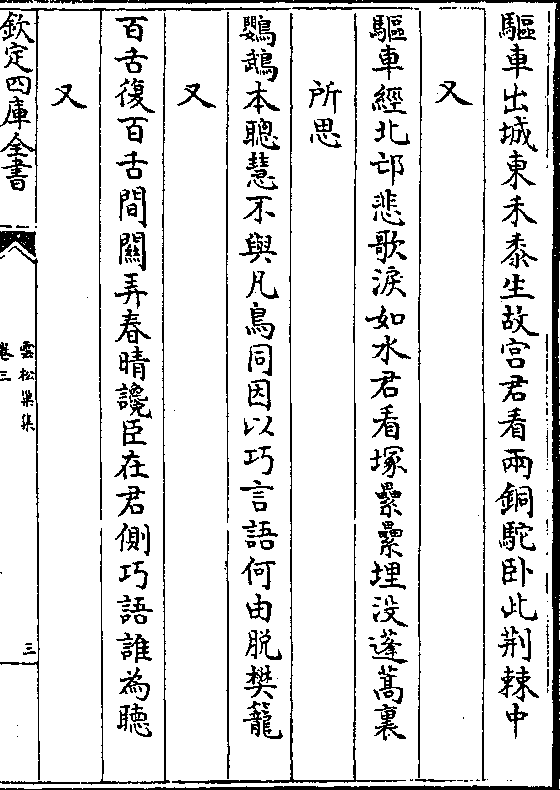 驅車出城東禾黍生故宫君看兩銅駝卧此荆棘中
又
驅車經北邙悲歌淚如水君看塚纍纍埋没蓬蒿裏
所思
鸚鵡本聰慧不與凡鳥同因以巧言語何由脱樊籠
又
百舌復百舌間關弄春晴讒臣在君側巧語誰為聴
又
欽定四庫全書
雲松巢集
卷三
三